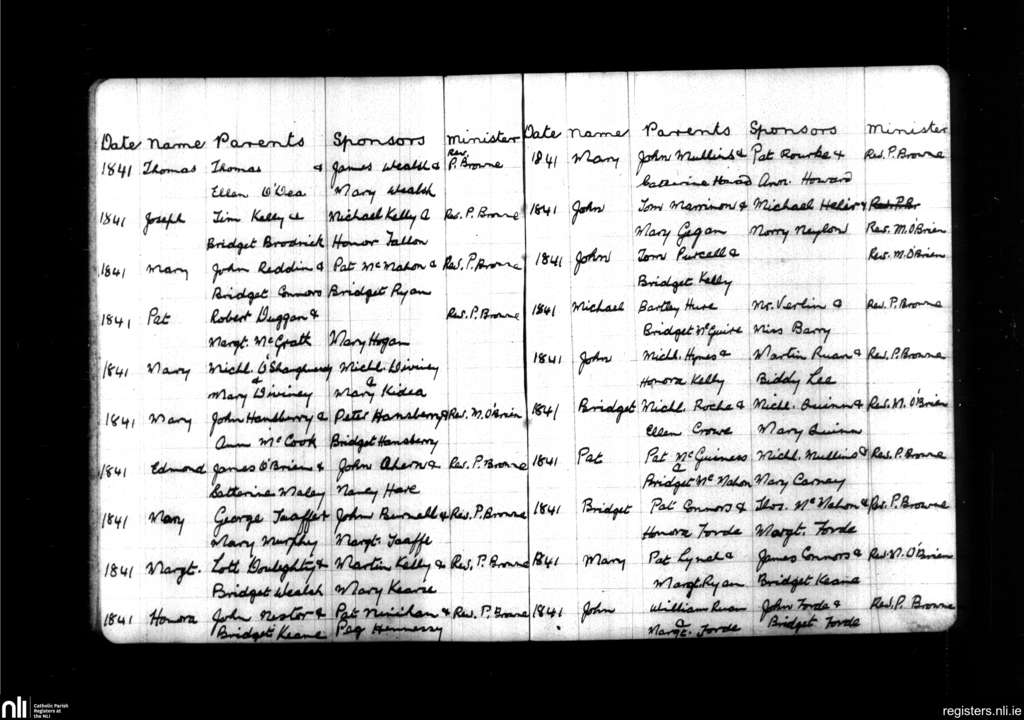 Date Name Parents Sponsors Minister
1841 Thomas Thomas & James Wealsh & Rev. P. Browne
Ellen O'Dea Mary Wealsh
1841 Joseph Tim Kelly & Michael Kelly & Rev. P. Browne
Bridget Brodrick Honor Fallon
1841 Mary John Reddin & Pat McMahon & Rev. P. Browne
Bridget Connors Bridget Ryan
1841 Pat Robert Duggan & Rev. P. Browne
Margt. McGrath Mary Hogan
1841 Mary Michl. O'Shaughnessy Michl. Diviney
& &
Mary Diviney Mary Kidea
1841 Mary John Hansberry & Peter Hansberry & Rev. M. O'Brien
Ann McCook Bridget Hansberry
1841 Edmond James O'Brien & John Ahern & Rev. P. Browne
Catterine Maley Nancy Hare
1841 Mary George Taaffe & John Burnell & Rev. P. Browne
Mary Murphy Margt. Taaffe
1841 Margt. Loti Doughty & Martin Kelly & Rev. P. Browne
Bridget Wealsh Mary Kearse
1841 Honora John Nestor & Pat Minihan & Rev. P. Browne
Bridget Keane Peg Hennessy
Date Name Parents Sponsors Minister
1841 Mary John Mullins & Pat Rourke & Rev. P. Browne
Catterine Howard Ann. Howard
1841 John Tom Marrinon & Michael Helir &
Mary Gegan Norry Neylon Rev. M. O'Brien
1841 John Tom Purcell & Rev. M. O'Brien
Bridget Kelly
1841 Michael Bartley Hure Mr. Verlin & Rev. P. Browne
Bridget McGuire Miss Barry
1841 John Michl. Hynes & Martin Ruan & Rev. P. Browne
Honora Kelly Biddy Lee
1841 Bridget Michl. Roche & Michl. Quinn & Rev. M. O'Brien
Ellen Crowe Mary Quinn
1841 Pat Pat McGuiness Michl. Mullins & Rev. P. Browne
&
Bridget McMahon Mary Carney
1841 Bridget Pat Connors & Thos. McMahon & Rev. P. Browne
Honora Forde Margt. Forde
1841 Mary Pat Lynch & James Connors & Rev. M. O'Brien
Margt. Ryan Bridget Keane
1841 John William Ruan John Forde & Rev. P. Browne
&
Margt. Forde Bridget Forde
nli Catholic Parish
Registers at
the NLI
registers.nli.ie